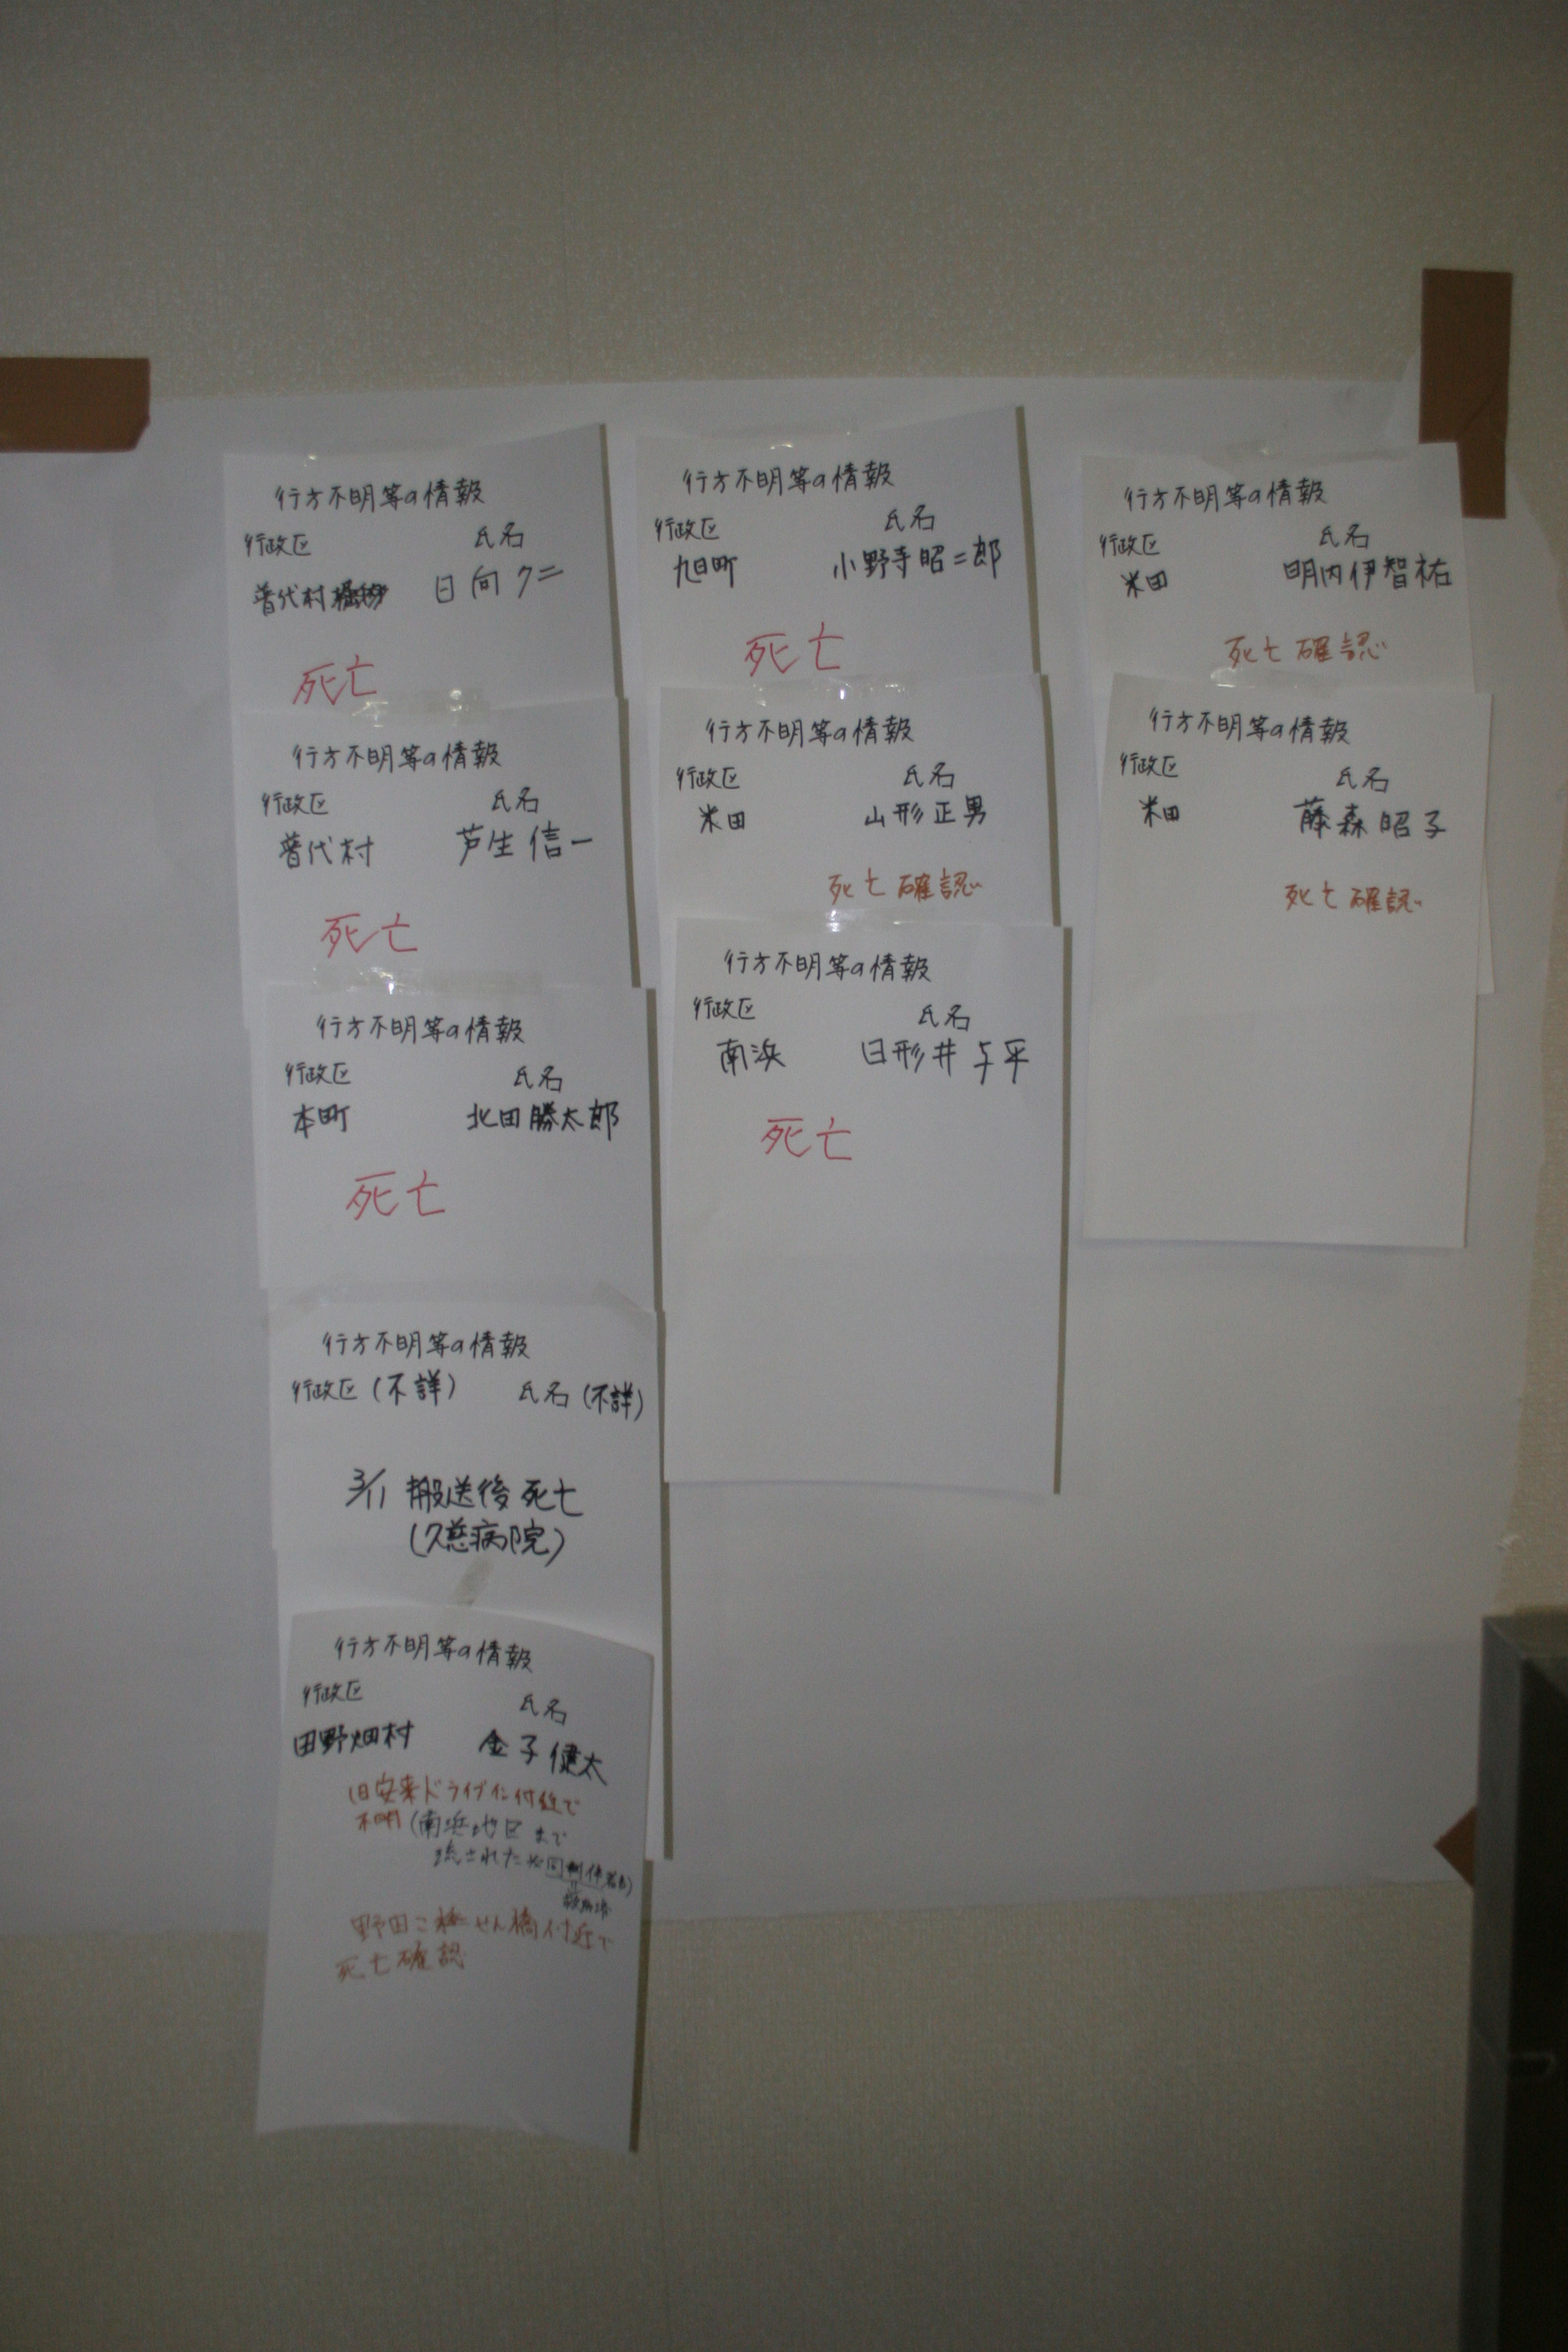 行方不明等の情報
行政区 氏名
普代村 日向クニ
死亡
行方不明等の情報
行政区 氏名
普代村 芦生信一
死亡
行方不明等の情報
行政区 氏名
本町 北田勝太郎
死亡
行方不明等の情報
行政区(不詳) 氏名(不詳)
3/11 搬送後死亡
(久慈病院)
行方不明等の情報
行政区 氏名
田野畑村 金子健太
旧安来ドライブイン付近で
不明(南浜地区まで
流された
野田こ線せん橋付近で
死亡確認
行方不明等の情報
行政区 氏名
旭町 小野寺昭二郎
死亡
行方不明等の情報
行政区 氏名
米田 山形正男
死亡確認
行方不明等の情報
行政区 氏名
南浜 日形井与平
死亡
行方不明等の情報
行政区 氏名
米田 明内伊智祐
死亡確認
行方不明等の情報
行政区 氏名
米田 藤森昭子
死亡確認